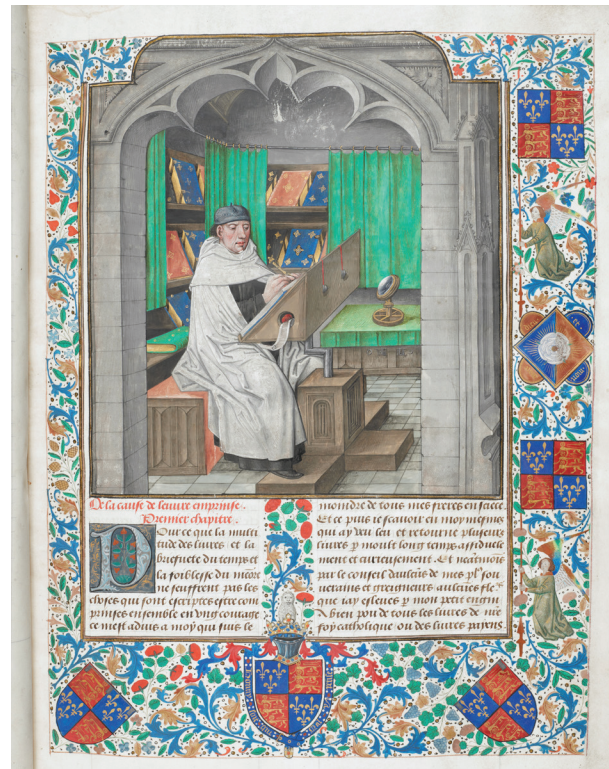 De la cause de leuure emprinse.
Premier chapitre.
Pour ce que la multi
tude des liures et la
briefuete du temps et
la foiblesse du
ne seuffrent pas les
choses qui sont escriptes estre com
prinses ensemble en ung courage
ce mest aduis a moy qui suis le
mondre de tous mes freres en
Et ce puis ie scauoir en moy mesmes
qui ay veu leu et retourne pluseurs
liures p moult long temps assiduele
ment et curieusement. Et neantmoins
par le conseil daulcuns de mes pl' sou
uerains et greigneurs aulcunes
que iay esleues p mon petit engin
A bien pou de tous les liures de nre
foy catholique ou des liures payens.